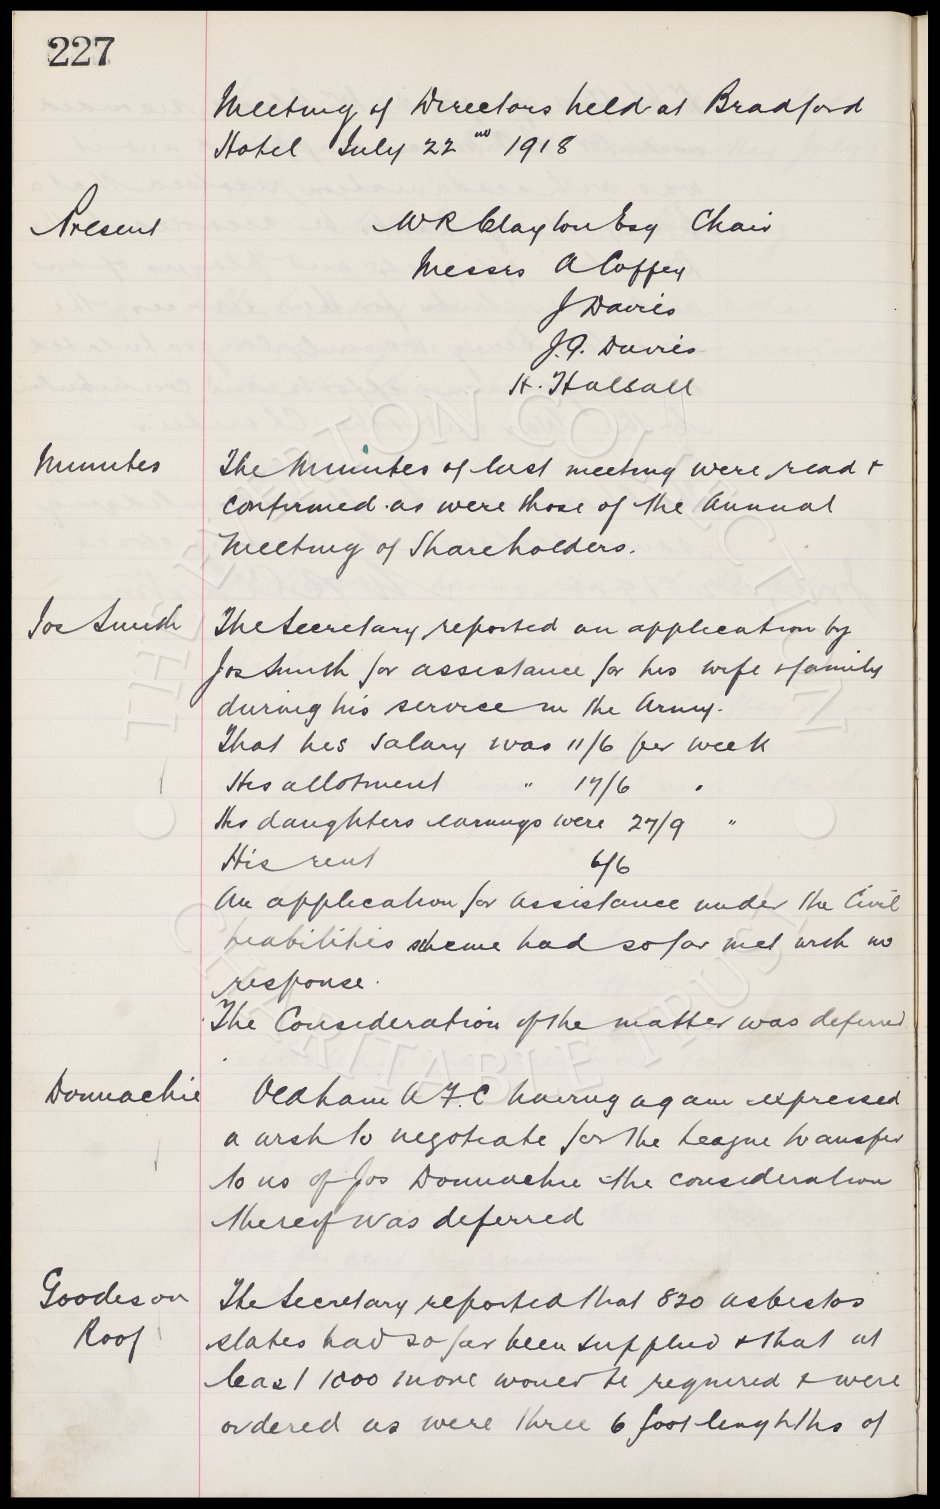 227
Meeting of Directors held at Bradford
Hotel July 22nd 1918
Present
W R Clayton Esq Chair
Messrs A Coffey
J Davies
J.G. Davies
H. Halsall
Minutes
The Minutes of last meeting were read &
confirmed as were those of the Annual
Meeting of Shareholders.
Jos Smith
The Secretary reported an application by
Jos Smith for assistance for his wife & family
during his service in the Army.
That his salary was 11/6 per week
His allotment " 17/6 "
His daughters earnings were 27/9 "
His rent 6/6
An application for assistance under the Civil
liabilities scheme had so far met with no
response.
The Consideration of the matter was deferred
Donnachie
Oldham A F.C having again expressed
a wish to negotiate for the League transfer
to us of Jos Donnachie the consideration
thereof was deferred
Goodison
Roof
The Secretary reported that 820 asbestos
slates had so far been supplied & that at
least 1000 more would be required & were
ordered as were three 6 foot lenghths of
THE EVERTON COLLECTION
CHARITABLE TRUST